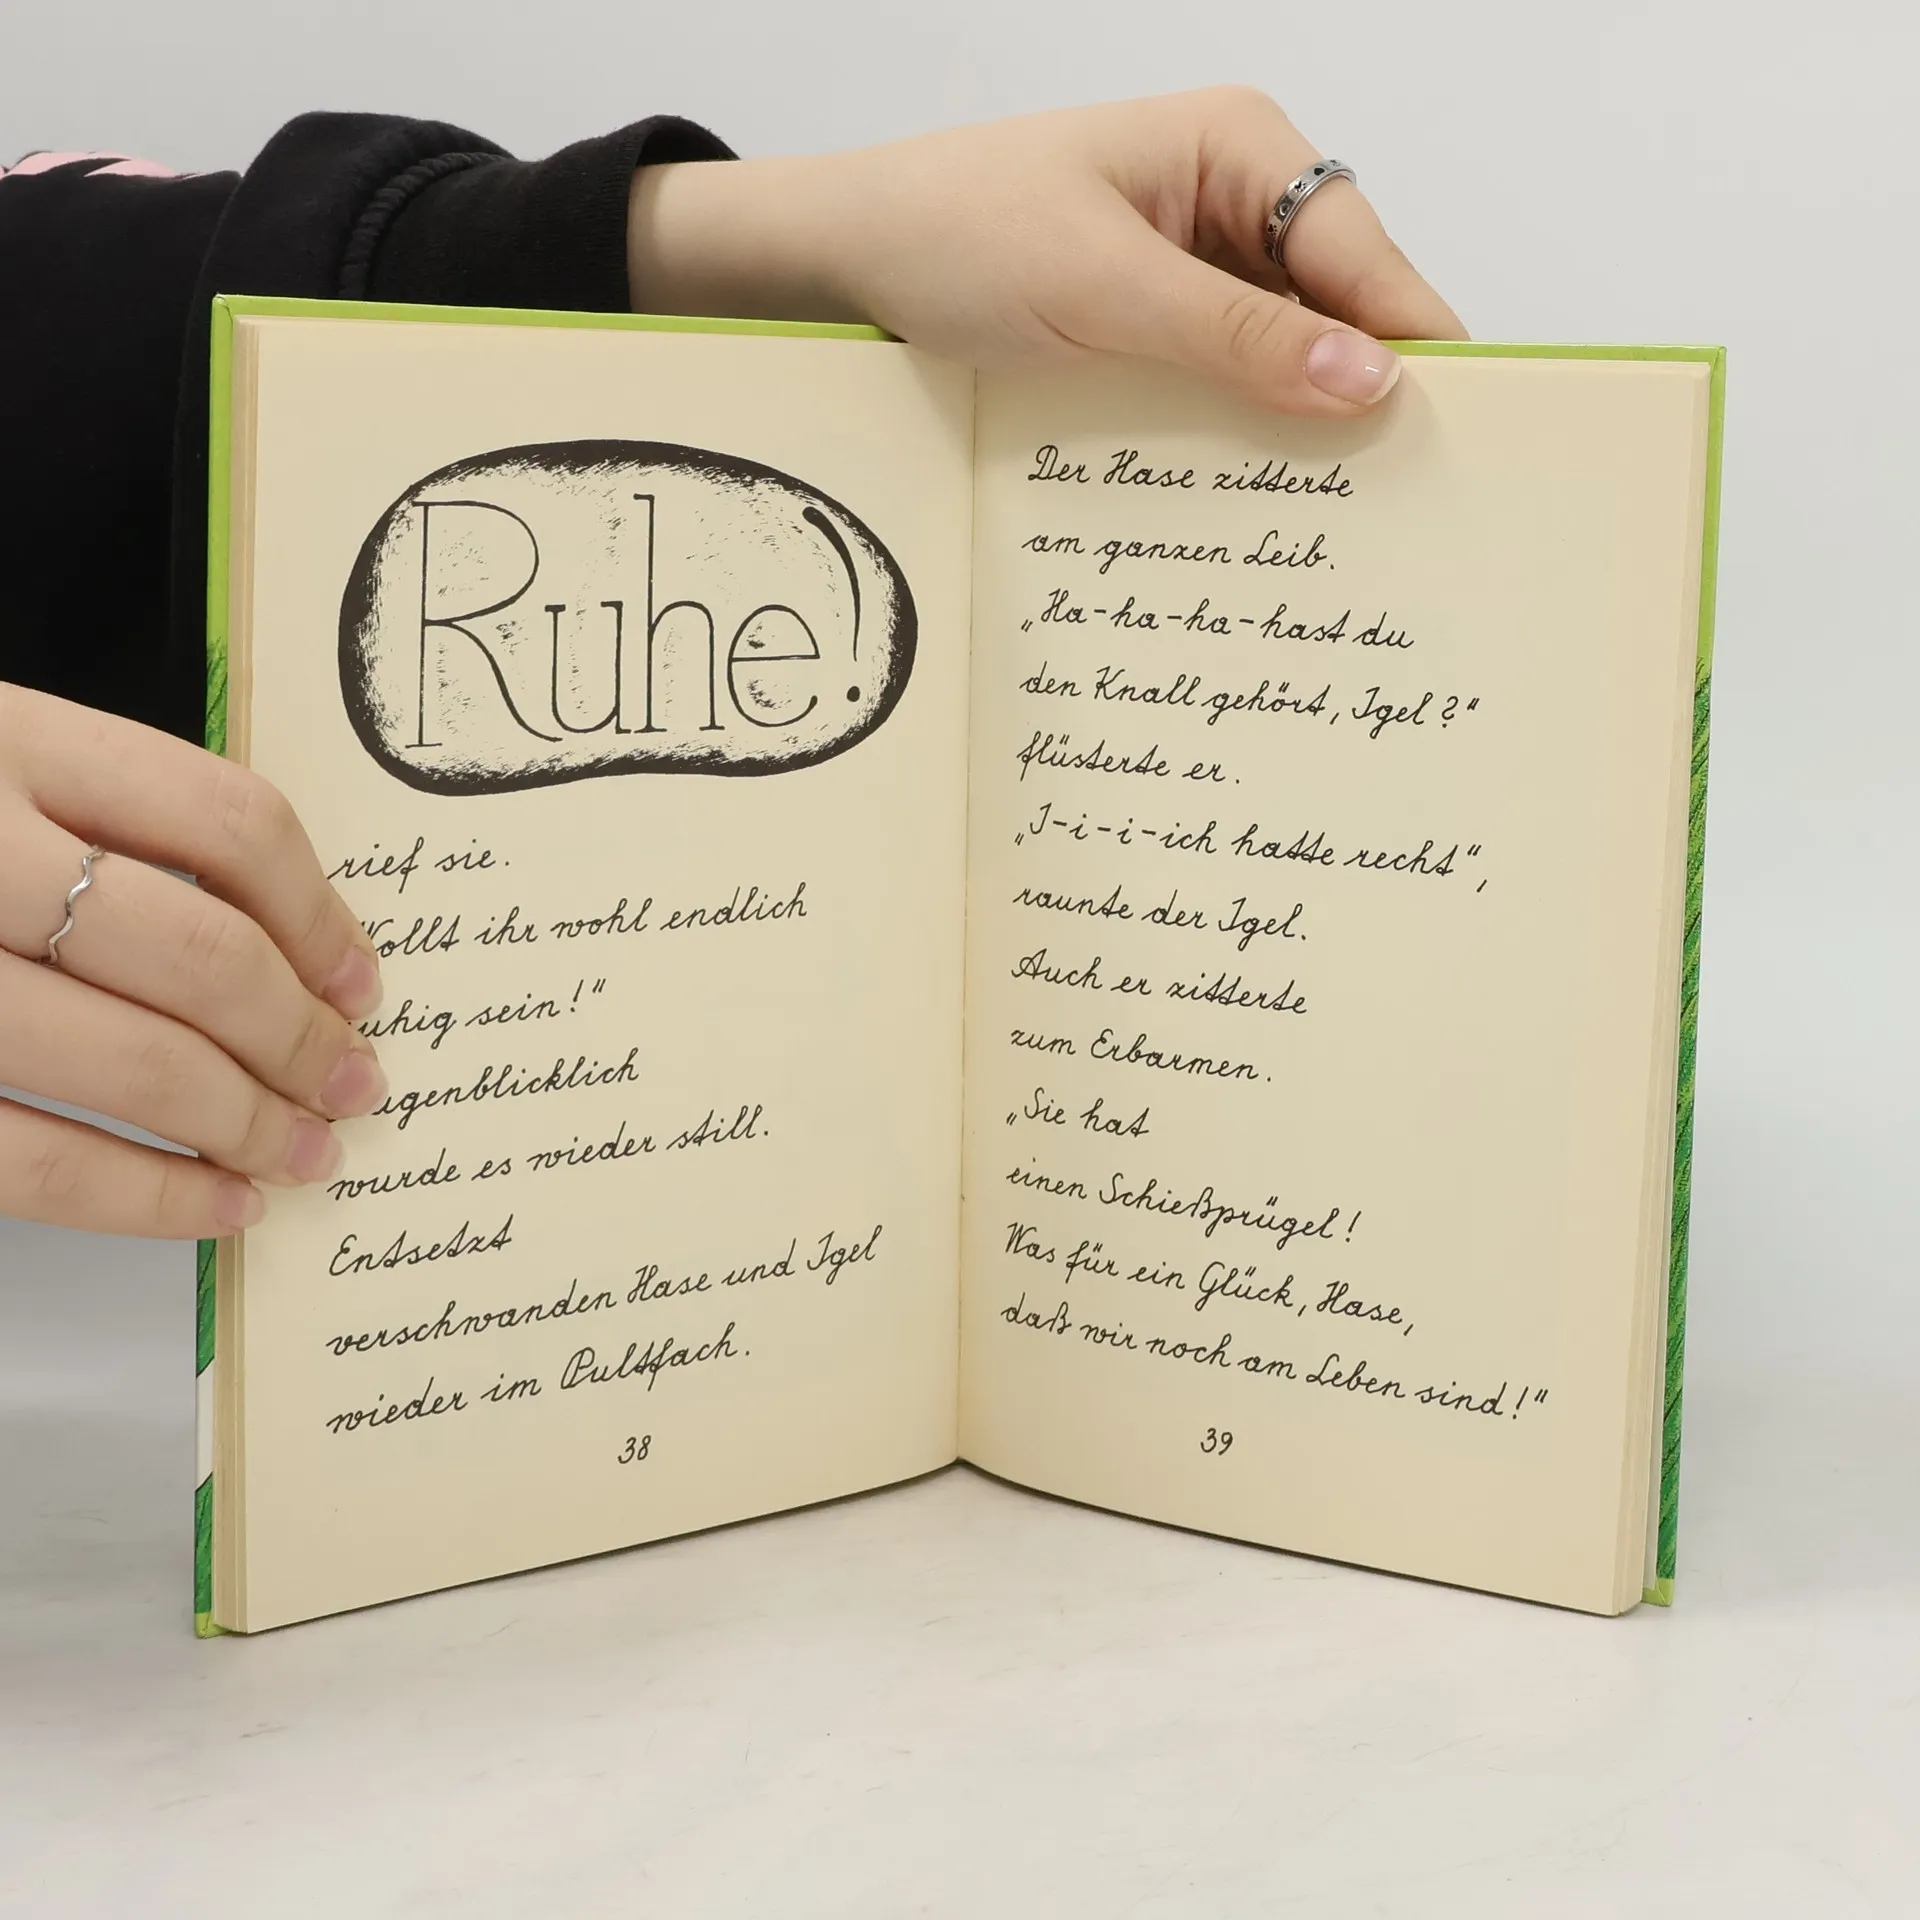 Ruhe!
rief sie.
Wollt ihr wohl endlich
ruhig sein!“
Augenblicklich
wurde es wieder still.
Entsetzt
verschwanden Hase und Igel
wieder im Pultfach.
38
Der Hase zitterte
am ganzen Leib.
„Ha-ha-ha-hast du
den Knall gehört, Igel?“
flüsterte er.
„I-i-i-ich hatte recht“,
raunte der Igel.
Auch er zitterte
zum Erbarmen.
„Sie hat
einen Schießprügel!
Was für ein Glück, Hase,
daß wir noch am Leben sind!“
39